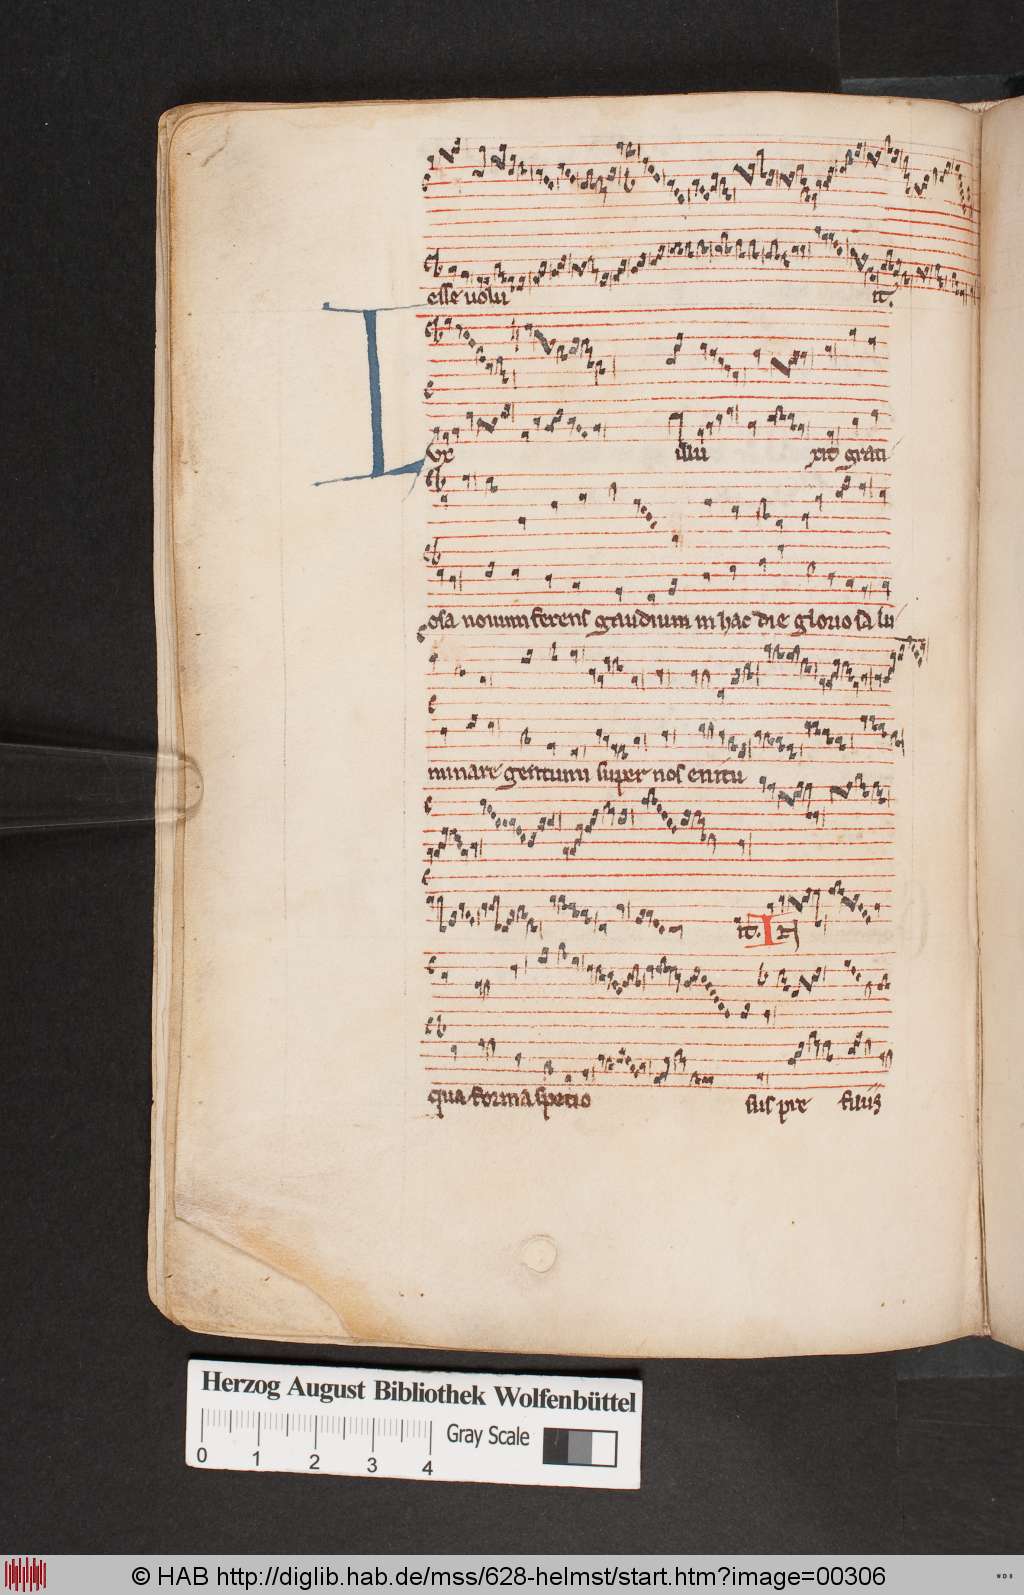 esse uolu it.
Lux illu xit grati
osa nouum ferens gaudium in hac die gloriosa lu
minare gentium super nos enitu
it. I
qua forma specio sus pre filiis
Herzog August Bibliothek Wolfenbüttel
Gray Scale
0 1 2 3 4
© HAB http://diglib.hab.de/mss/628-helmst/start.htm?image=00306